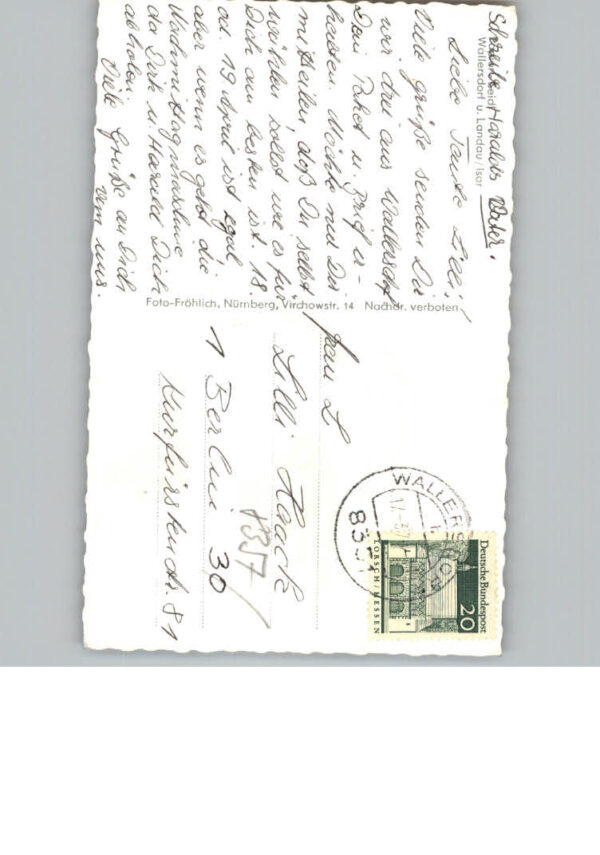 Schreibe Haralds Vater.
Wallersdorf u. Landau/Isar
Liebe Tante Lilli,
Viele Grüße senden Dir
wir aus Wallersdorf
Dein Paket u. Brief er-
halten. Möchte nur Dir
mitteilen, daß Du selbst
wählen sollst wie es für
Dich am besten ist. 18.
od. 19 April ist egal
aber wenn es geht die
Nachmittagmaschine
da Dirk u. Harald Dich
abholen.
Viele Grüße an Dich
von uns.
Foto-Fröhlich, Nürnberg, Virchowstr. 14 Nachdr. verboten
Frau L
Lilli Haack
1 Berlin 30
Kurfürstenstr. 81
8357
WALLERSDORF
Deutsche Bundespost
20
LORSCH/HESSEN